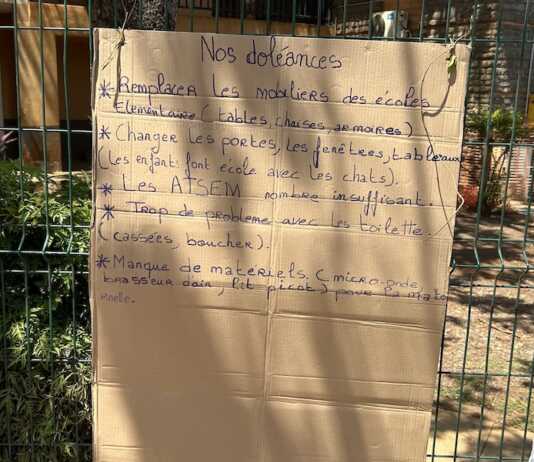 Nos doléances
* Remplacer les mobiliers des écoles
Elementaire (tables, chaises, armoires)
* Changer les portes, les fenêtres, tableaux
(les enfant font école avec les chats).
* Les ATSEM nombre insuffisant.
* Trop de probleme avec les toilette.
(cassées, boucher).
* Manque de matériels. (micro-onde,
brasseur dair, lit picot) pour la mate
rnelle.